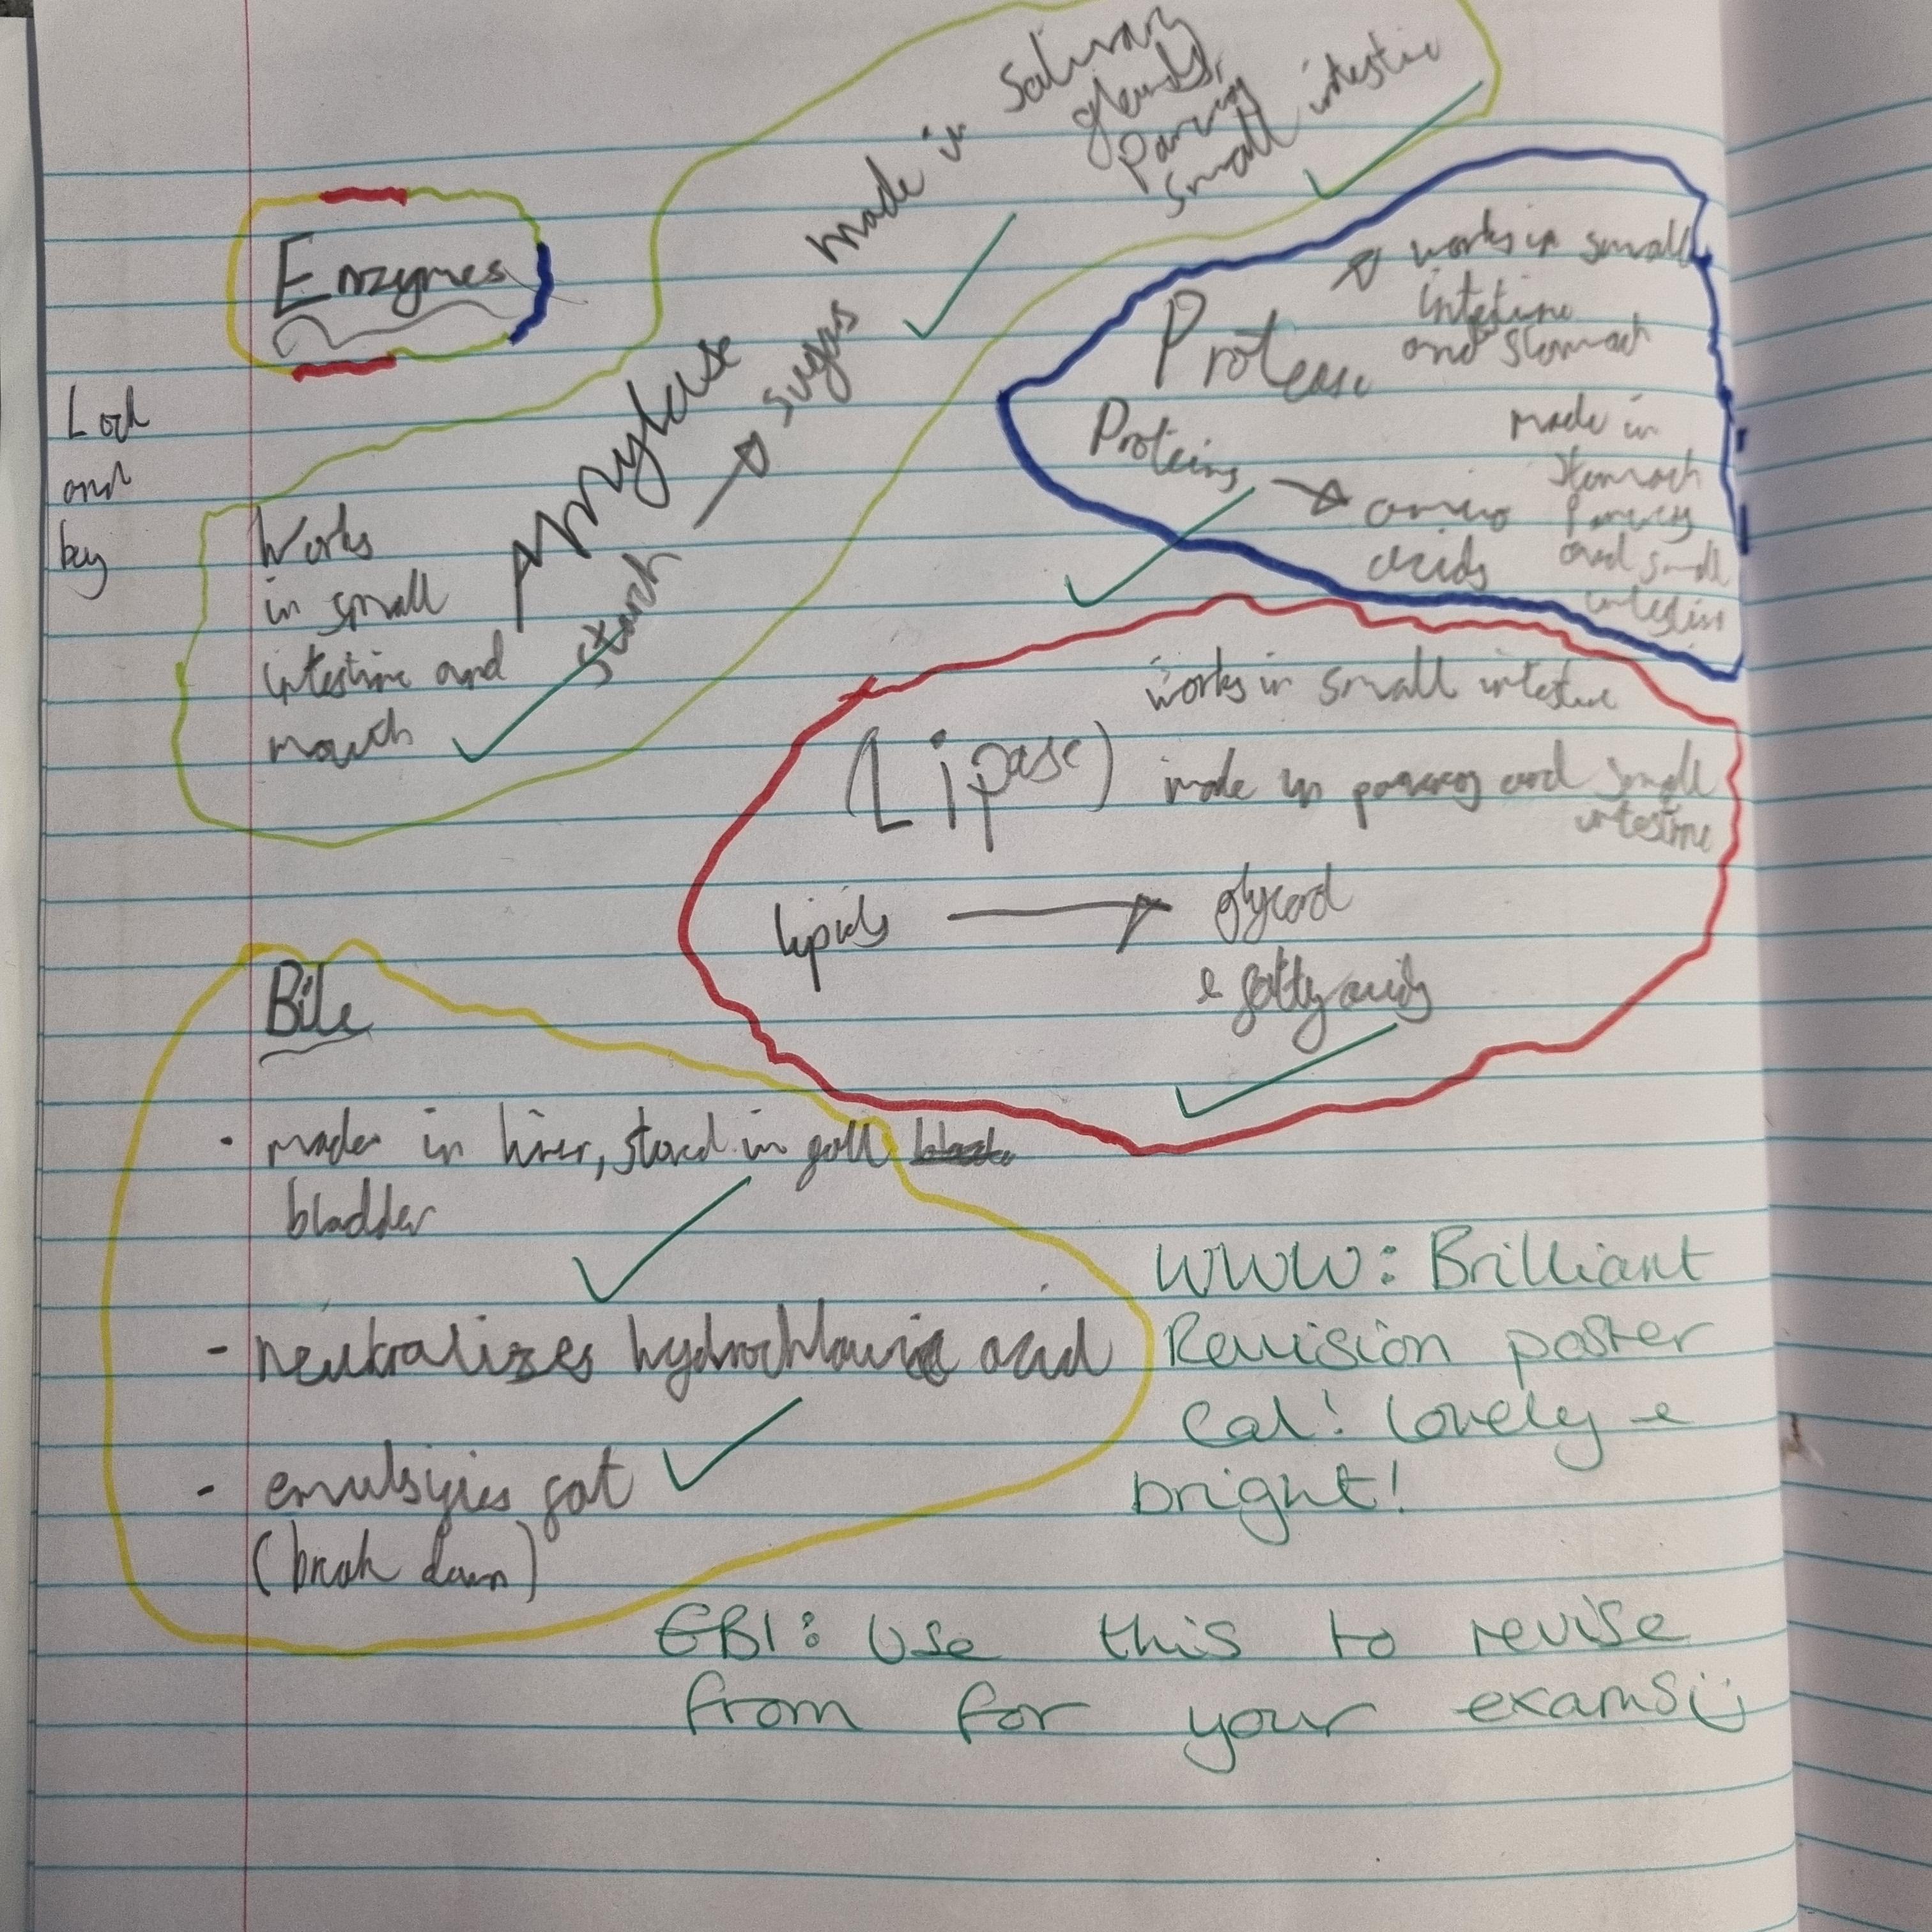 Enzymes
Lock
and
key
made in Salivary
glands,
Pancreas
small intestine
Amylase
starch → sugars
Works
in small
intestine and
mouth
Protease
works in small
intetine
and stomach
Proteins → amino
acids
made in
stomach
Pancreas
and small
intestine
(Lipase)
works in small intestine
made in pancreas and small
intestine
lipids → glycerol
& fatty acids
Bile
- made in liver, stored in gall
bladder
- neutralizes hydrochlauric acid
- emulsifies fat
(break down)
WWW: Brilliant
Revision poster
Cal! Lovely &
bright!
EBI: Use this to revise
from for your exams :)